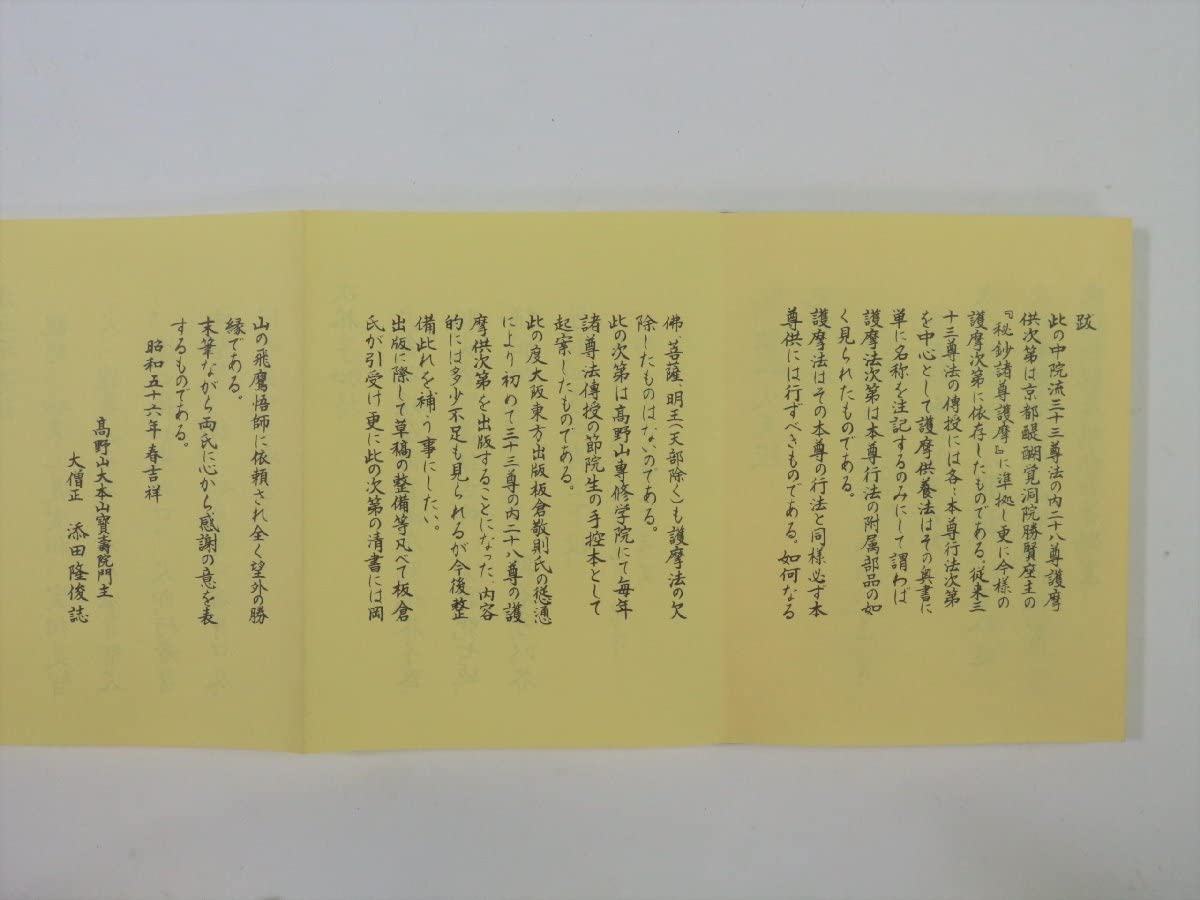 跋
此の中院流三十三尊法の内二十八尊護摩
供次第は京都醍醐覚洞院勝賢座主の
『秘鈔諸尊護摩』に準拠し更に今様の
護摩次第に依存したものである。従来三
十三尊法の傳授には各〻本尊行法次第
を中心として護摩供養法はその奥書に
単に名称を注記するのみにして謂わば
護摩法次第は本尊行法の附属部品の如
く見られたものである。
護摩法はその本尊の行法と同様必ず本
尊供には行ずべきものである。如何なる
佛、菩薩、明王(天部除く)も護摩法の欠
除したものはないのである。
此の次第は高野山専修学院にて毎年
諸尊法傳授の節院生の手控本として
起案したものである。
此の度大阪東方出版板倉敬則氏の慫慂
により初めて三十三尊の内二十八尊の護
摩供次第を出版することになった、内容
的には多少不足も見られるが今後整
備此れを補う事にしたい。
出版に際して草稿の整備等凡べて板倉
氏が引受け更に此の次第の清書には岡
山の飛鷹悟師に依頼され全く望外の勝
縁である。
末筆ながら両氏に心から感謝の意を表
するものである。
昭和五十六年春吉祥
高野山大本山寶壽院門主
大僧正 添田隆俊誌